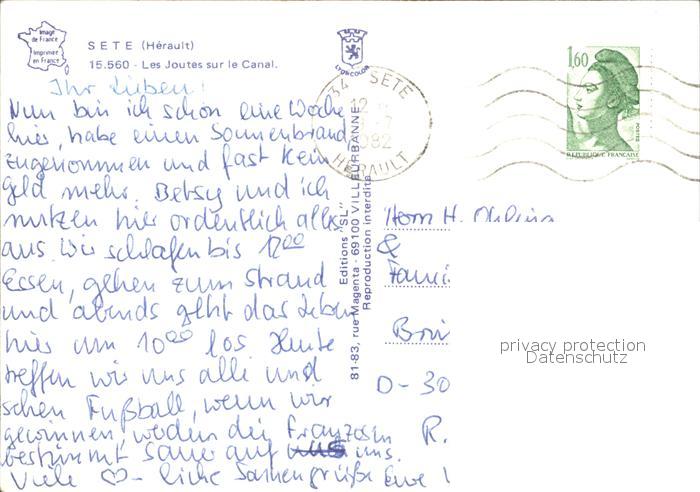 Image
de France
Imprimée
en France
SETE (Hérault)
15.560 - Les Joutes sur le Canal.
LYONCOLOR
34 SETE
12 H
-7
1982
HERAULT
1,60
POSTES
REPUBLIQUE FRANCAISE
Ihr Lieben!
Nun bin ich schon eine Woche
hier, habe einen Sonnenbrand,
zugenommen und fast kein
Geld mehr. Betsy und ich
nutzen hier ordentlich alles
aus. Wir schlafen bis 12 00
Essen, gehen zum Strand
und abends geht das Leben
hier um 10 00 los. Heute
treffen wir uns alle und
sehen Fußball, wenn wir
gewinnen, werden die Franzosen
bestimmt sauer auf uns.
Viele ♡-liche Sonnengrüße Eure
Editions "SL"
81-83, rue Magenta - 69100 VILLEURBANNE
Reproduction interdite
Herrn H.
&
Fami
D-30
R.
privacy protection
Datenschutz